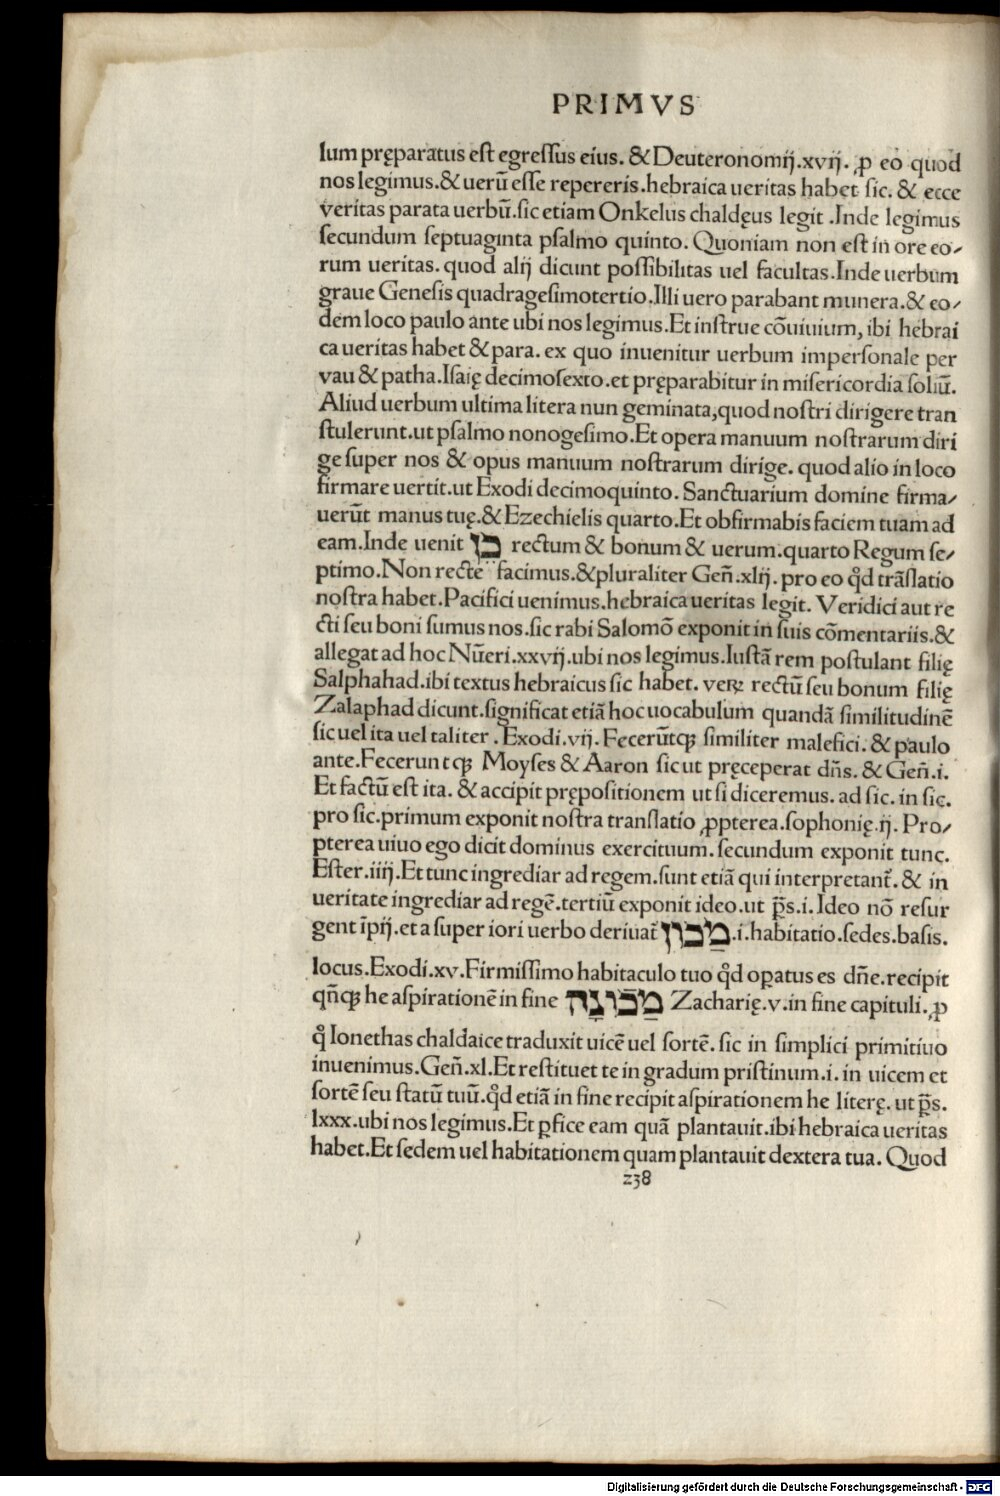 PRIMVS
lum pręparatus est egressus eius. & Deuteronomij.xvij. ꝓ eo quod
nos legimus.& uerū esse repereris.hebraica ueritas habet sic. & ecce
veritas parata uerbū.sic etiam Onkelus chaldęus legit .Inde legimus
secundum septuaginta psalmo quinto. Quoniam non est in ore eo/
rum ueritas. quod alij dicunt possibilitas uel facultas.Inde uerbum
graue Genesis quadragesimotertio.Illi uero parabant munera.& eo/
dem loco paulo ante ubi nos legimus.Et instrue cōuiuium, ibi hebrai
ca ueritas habet & para. ex quo inuenitur uerbum impersonale per
vau & patha.Isaię decimosexto.et pręparabitur in misericordia soliū.
Aliud uerbum ultima litera nun geminata,quod nostri dirigere tran
stulerunt.ut psalmo nonogesimo.Et opera manuum nostrarum diri
ge super nos & opus manuum nostrarum dirige. quod alio in loco
firmare uertit.ut Exodi decimoquinto. Sanctuarium domine firma/
uerūt manus tuę.& Ezechielis quarto.Et obfirmabis faciem tuam ad
eam.Inde uenit כֵן rectum & bonum & uerum.quarto Regum se/
ptimo.Non recte facimus.&pluraliter Gen̄.xlij. pro eo qd̊ trāslatio
nostra habet.Pacifici uenimus.hebraica ueritas legit. Veridici aut re
cti seu boni sumus nos.sic rabi Salomō exponit in suis cōmentariis.&
allegat ad hoc Nūeri.xxvij.ubi nos legimus.Iustā rem postulant filię
Salphahad.ibi textus hebraicus sic habet. veꝝ rectū seu bonum filię
Zalaphad dicunt.significat etiā hoc uocabulum quandā similitudinē
sic uel ita uel taliter . Exodi.vij. Fecerūtqꝫ similiter malefici. & paulo
ante.Feceruntqꝫ Moyses & Aaron sicut pręceperat dn̄s. & Gen̄.i.
Et factū est ita. & accipit prępositionem ut si diceremus. ad sic. in sic.
pro sic.primum exponit nostra translatio ꝓpterea.sophonię.ij. Pro/
pterea uiuo ego dicit dominus exercituum. secundum exponit tunc.
Ester.iiij.Et tunc ingrediar ad regem.sunt etiā qui interpretant᷑. & in
ueritate ingrediar ad regē.tertiū exponit ideo.ut p̄s.i. Ideo nō resur
gent īpij.et a super iori uerbo deriuat᷑ מַכוֹן.i.habitatio.sedes.basis.
locus.Exodi.xv.Firmissimo habitaculo tuo qd̊ oꝑatus es dn̄e.recipit
qn̄qꝫ he aspirationē in fine מַכוֹנָה Zacharię.v.in fine capituli.ꝓ
q̊ Ionethas chaldaice traduxit uicē uel sortē. sic in simplici primitiuo
inuenimus.Gen̄.xl.Et restituet te in gradum pristinum.i. in uicem et
sortē seu statū tuū.qd̊ etiā in fine recipit aspirationem he literę. ut p̄s.
lxxx.ubi nos legimus.Et ꝑfice eam quā plantauit.ibi hebraica ueritas
habet.Et sedem uel habitationem quam plantauit dextera tua. Quod
238
Digitalisierung gefördert durch die Deutsche Forschungsgemeinschaft - DFG